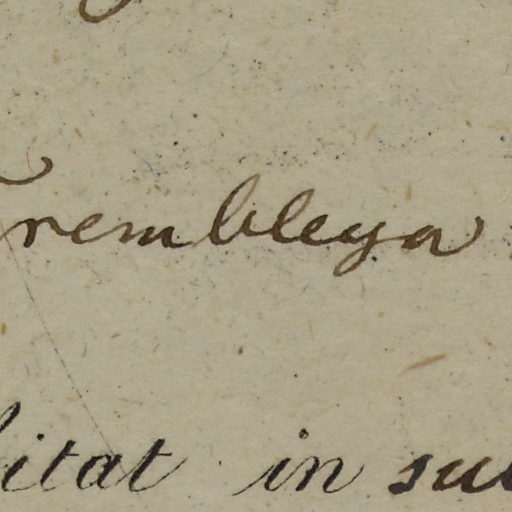 Trembleya
bitat in sub